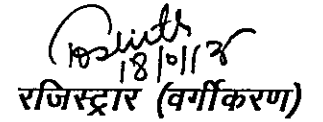 18/01/13
रजिस्ट्रार (वर्गीकरण)